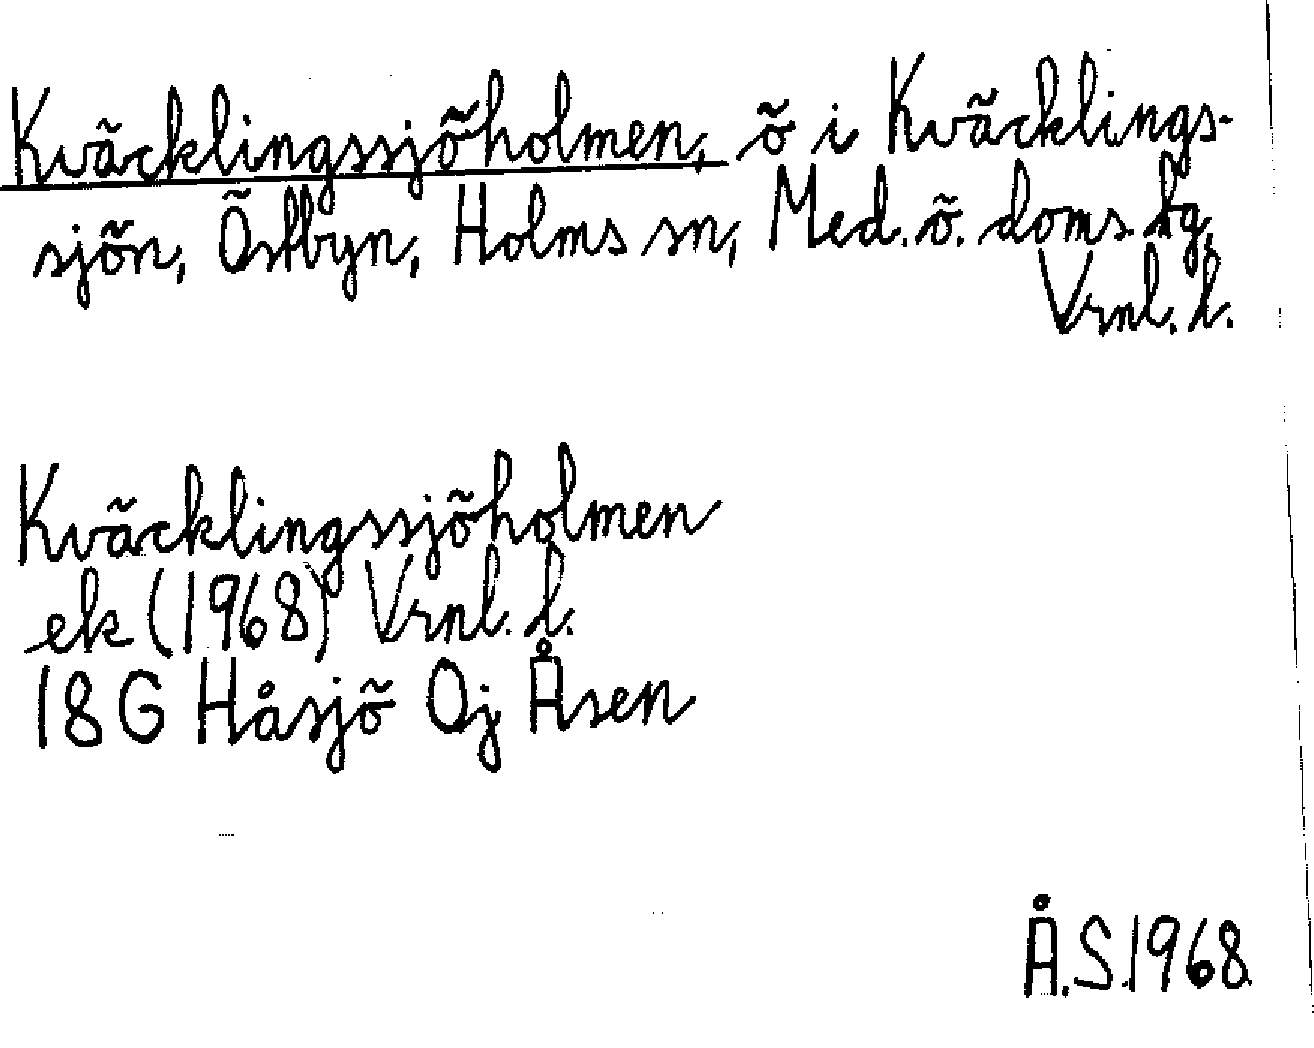 Kväcklingssjöholmen, ö i Kväcklings-
sjön, Östbyn, Holms sn, Med. ö. doms. hg,
Vrnl. l.
Kväcklingssjöholmen
ek (1968) Vrnl. l.
18G Håsjö Oj Åsen
Å.S.1968